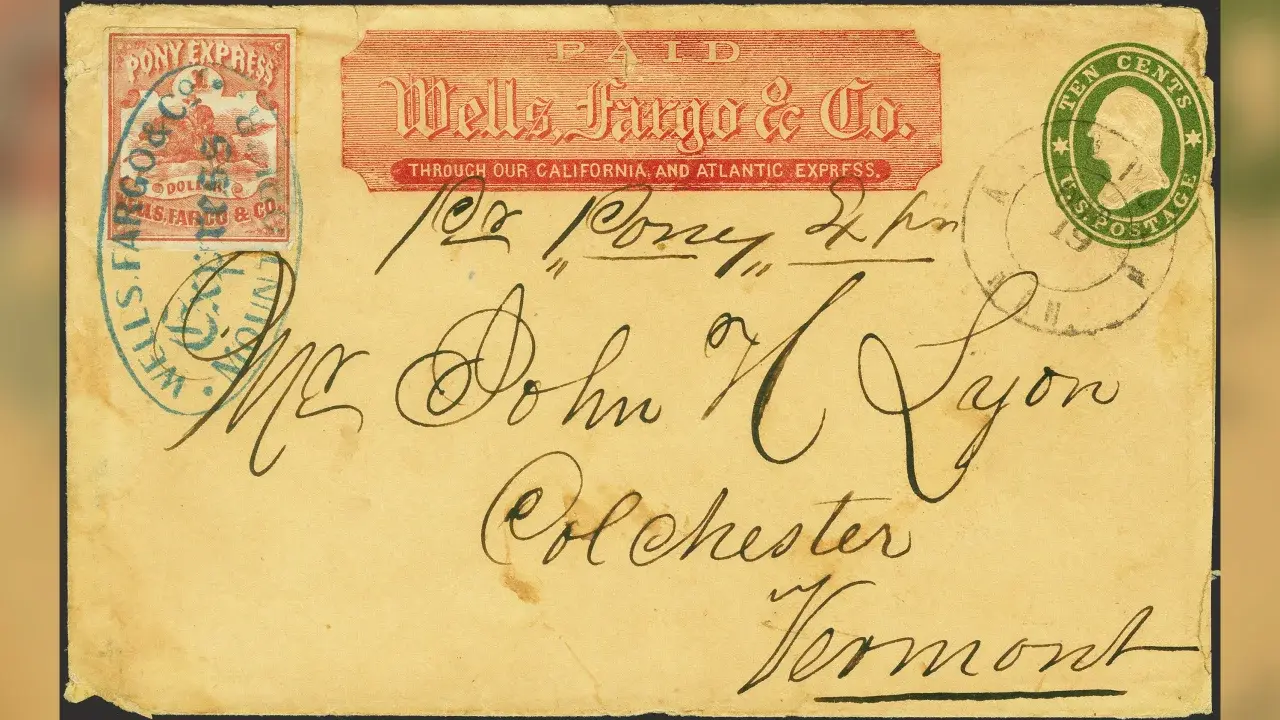 PONY EXPRESS
DOLLAR
WELLS, FARGO & CO.
WELLS, FARGO & Co.
PAID
Wells, Fargo & Co.
THROUGH OUR CALIFORNIA AND ATLANTIC EXPRESS.
TEN CENTS
U.S. POSTAGE
19
Pr Poney Exprs
Mr John H Lyon
Colchester
Vermont